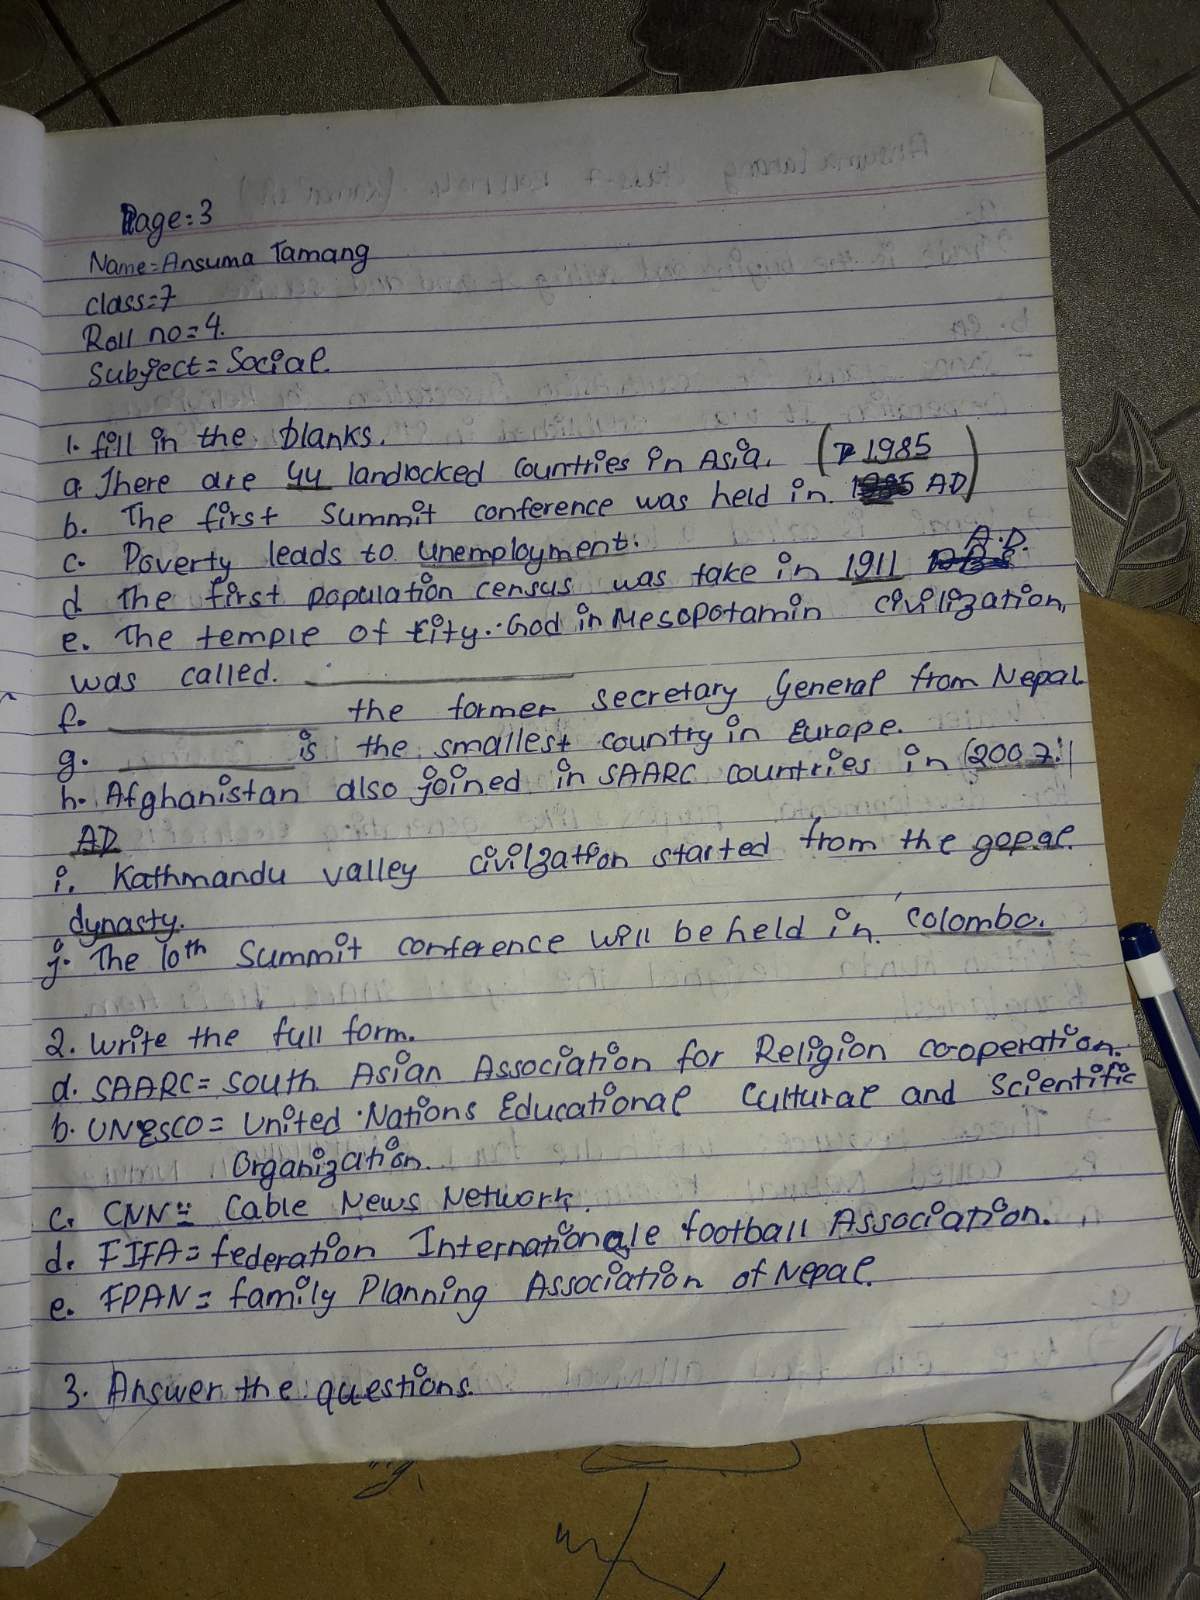 Page:3
Name=Ansuma Tamang
class=7
Roll no=4.
Subject=Social.
1. fill in the blanks.
a. There are 44 landlocked countries in Asia. (1985
b. The first Summit conference was held in. AD)
c. Poverty leads to unemployment. A.D.
d. The first population census was take in 1911
e. The temple of City. God in Mesopotamin civilization,
was called. ____________
f. ____________ the former secretary General from Nepal.
g. ____________ is the smallest country in Europe.
h. Afghanistan also joined in SAARC countries in (2007.)
AD
i. Kathmandu valley civilzation started from the gopal.
dynasty.
j. The 10th Summit conference will be held in. colombo.
2. Write the full form.
d. SAARC= South Asian Association for Religion cooperation.
b. UNESCO= United Nations Educational Cultural and Scientific
Organization.
c. CNN= Cable News Network.
d. FIFA= federation Internationale football Association.
e. FPAN= family Planning Association of Nepal.
3. Answer the questions.